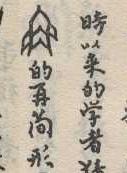 时以来的学者猜
的再简形